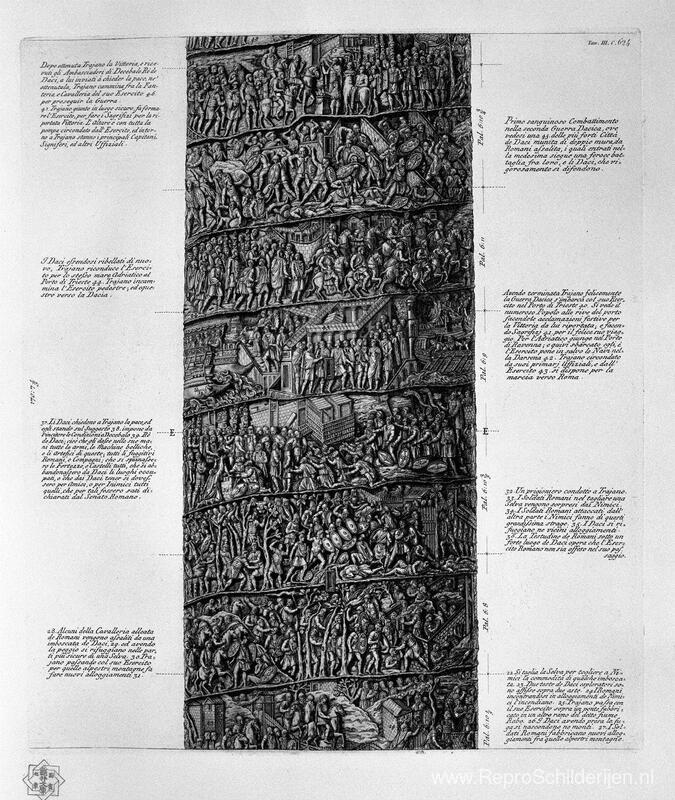 Tom. III. C. 624
Dopo ottenuta Trajano la Vittoria, e rice-
vuti gli Ambasciadori di Decebalo Re de
Daci, a lui inviati à chieder la pace, nè
ottenutala, Trajano cammina fra la Fan-
teria, e Cavalleria del suo Esercito 46.
per proseguir la Guerra
47. Trajano giunto in luogo sicuro, fa ferma-
re l'Esercito, per fare i Sagrifizj per la ri-
portata Vittoria. L'Altare è con tutta la
pompa circondato dall'Esercito, ed intor-
no a Trajano stanno i principali Capitani,
Signiferi, ed altri Uffiziali.
Primo sanguinoso Combattimento
nella seconda Guerra Dacica, ove
vedesi una 45. delle più forti Città
de Daci munita di doppie mura, da
Romani assalita, i quali entrati nel-
la medesima siegue una feroce bat-
taglia fra loro, e li Daci, che vi-
gorosamente si difendono.
I Daci essendosi ribellati di nuo-
vo, Trajano riconduce l'Eserci-
to per lo stesso mare Adriatico al
Porto di Trieste 44. Trajano incam-
mina l'Esercito pedestre, ed eque-
stre verso la Dacia.
Avendo terminata Trajano felicemente
la Guerra Dacica s'imbarca col suo Eser-
cito nel Porto di Trieste 40. Si vede il
numeroso Popolo alle rive del porto
facendole acclamazioni festive per
la Vittoria da lui riportata; e facen-
do Sagrifizj 41. per il felice suo viag-
gio. Per l'Adriatico giunge nel Porto
di Ravenna; e quivi sbarcato egli, e
l'Esercito pone in salvo le Navi nel-
la Darsena 42. Trajano circondato
da suoi primarj Uffiziali, e dall'
Esercito 43. si dispone per la
marcia verso Roma
37. Li Daci chiedono a Trajano la pace, ed
egli stando sul Suggesto 38. impone da
Vincitore le Condizioni a Decebalo 39. Re
de Daci; cioè che gli dasse nelle sue ma-
ni tutte le armi, le Machine belliche,
e li Artefici di queste; tutti li fuggitivi
Romani, e Compagni; che si spianasse-
ro le Fortezze, e Castelli tutti, che si ab-
bandonassero da Daci li luoghi occu-
pati, e che dai Daci tener si doves-
sero per Amici, o per Inimici tutti
quelli, che per tali fossero stati di-
chiarati dal Senato Romano.
E
E
32. Un prigioniero condotto a Trajano.
33. I Soldati Romani nel tagliare una
Selva vengono sorpresi dai Nimici.
34. I Soldati Romani attaccati dall'
altra parte i Nimici fanno di questi
grandissima strage. 35. I Daci si ri-
fuggiano ne vicini alloggiamenti.
36. La Testudine de Romani sotto un
forte luogo de Daci opera che l'Eser-
cito Romano non sia offeso nel suo pas-
saggio.
28. Alcuni della Cavalleria alleata
de Romani vengono assaliti da una
imboscata de Daci, 29. ed avendo
la peggio si rifuggiano nelle par-
ti più sicure di una Selva. 30. Tra-
jano passando col suo Esercito
per quelle alpestri montagne, fa
fare nuovi alloggiamenti 31.
22. Si taglia la Selva per togliere a Ni-
mici la commodità di qualche imbosca-
ta. 23. Due teste de Daci esploratori so-
no affisse sopra due aste. 24. I Romani
incontrandosi in alloggiamenti de Nimi-
ci l'incendiano. 25. Trajano passa con
il suo Esercito sopra un ponte fabbri-
cato in un altro ramo del detto fiume
Rabo. 26. I Daci avendo presa la fu-
ga si nascondono ne monti. 27. I Sol-
dati Romani fabbricano nuovi allog-
giamenti fra quelle alpestri montagne.
Pal. 6:11
Pal. 6:9
Pal. 6:8
www.ReproSchilderijen.nl